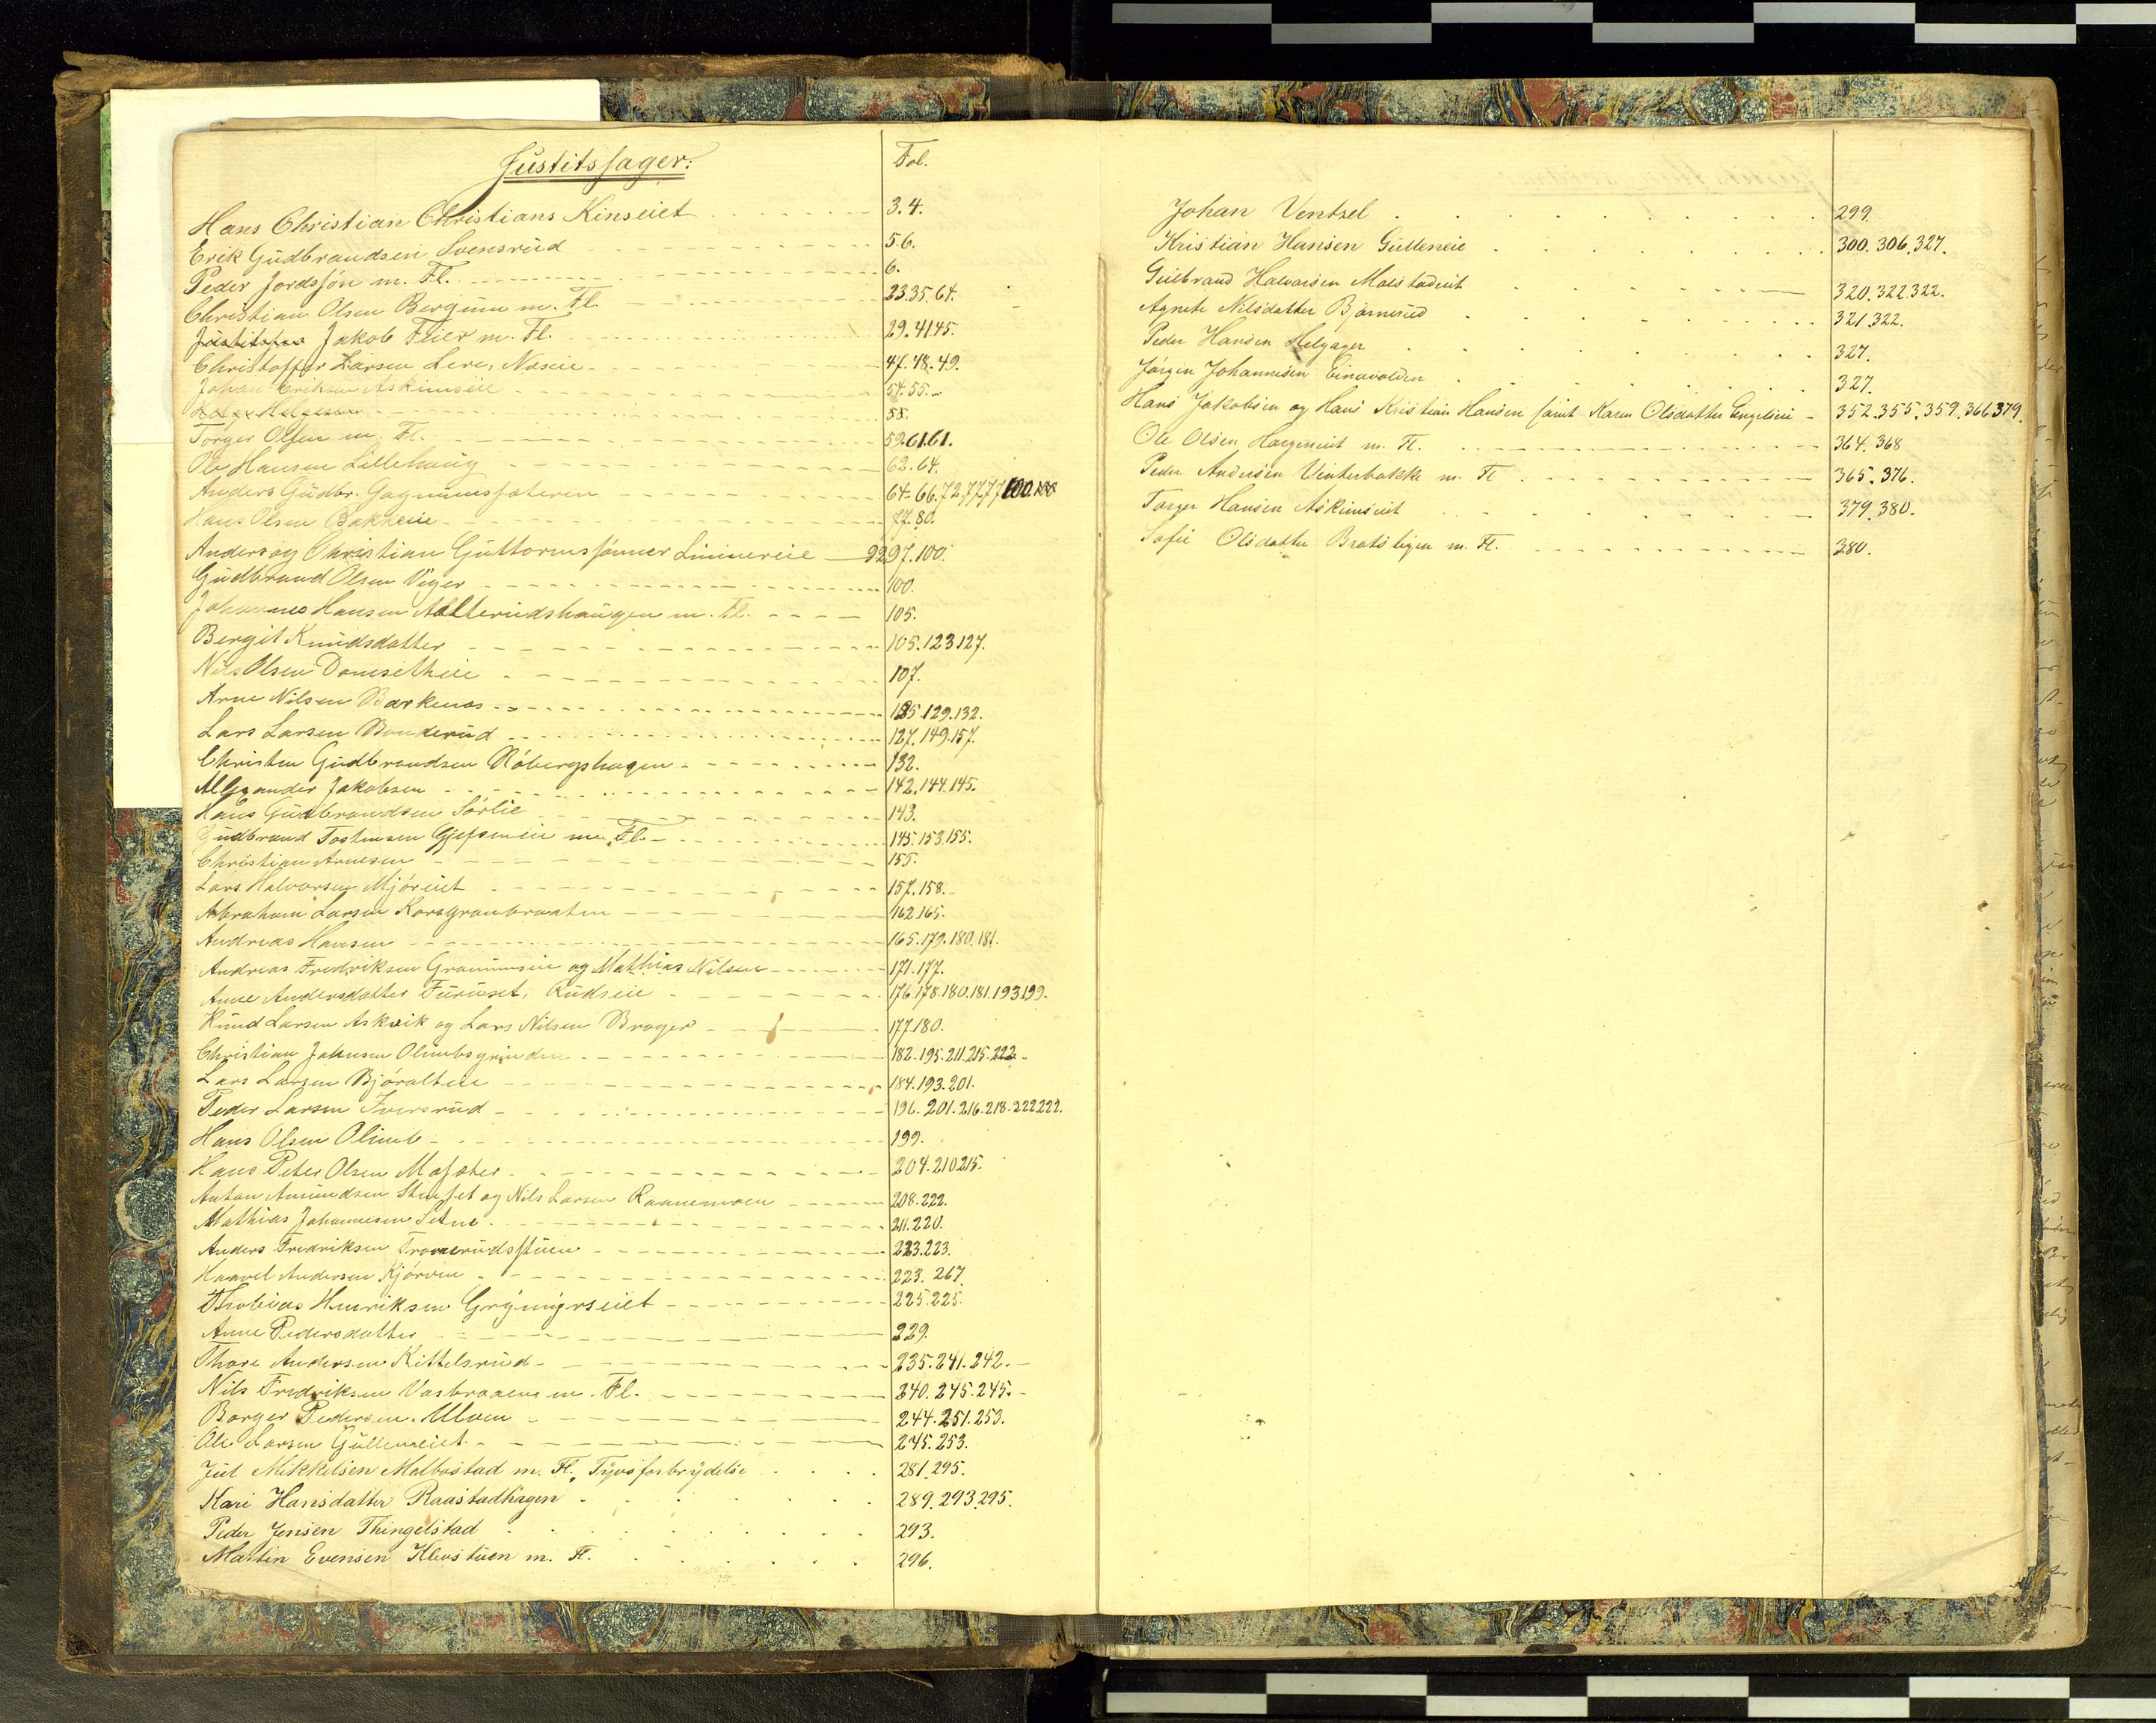 Justitssager:
Fol.
Hans Christian Christians Kinseiet 3.4.
Erik Gudbrandsen Svensrud 5.6.
Peder Jordssøn m. Fl. 6.
Christian Olsen Bergum m. Fl. 23.35.64.
Jakob Feier m. Fl. 29.41.45.
Christoffer Larsen Lere, Næseie 47.48.49.
Johan Eriksen Askimseie 54.55.
55.
Torger Olsen m. Fl. 59.61.61.
Ole Hansen Lillehaug 62.64.
Anders Gudbr. Gagnumssæteren 64.66.72.77.77.100.
Hans Olsen Bakkeeie 77.80.
Anders og Christian Guttormssønner Linnereie 92.97.100.
Gudbrand Olsen Viger 100.
Johannes Hansen Alterudshaugen m. Fl. 105.
Bergit Knudsdatter 105.123.127.
Nils Olsen Damsetheie 107.
Arne Nilsen Barkenæs 125.129.132.
Lars Larsen Bonderud 127.149.157.
Christen Gudbrandsen Nøbergshagen 132.
Alexander Jakobsen 142.144.145.
Hans Gudbrandsen Sørlie 143.
Gudbrand Tostensen Gjefseneie m. Fl. 145.153.155.
Christian Arnesen 155.
Lars Halvorsen Mjøreiet 157.158.
Abraham Larsen Korsgranbraaten 162.165.
Andreas Hansen 165.179.180.181.
Andreas Fredriksen Granumseie og Mathias Nilsen 171.177.
Anne Andersdatter Furuset, Rudseie 176.178.180.181.193.199.
Knud Larsen Askvik og Lars Nilsen Brager 177.180.
Christian Johnsen Olimbsgrinden 182.195.211.215.222.
Lars Larsen Bjøralteie 184.193.201.
Peder Larsen Iversrud 196.201.216.218.222.222.
Hans Olsen Olimb 199.
Hans Peter Olsen Mosæter 204.210.215.
Anton Amundsen Stenset og Nils Larsen Raanemoen 208.222.
Mathias Johannesen Setne 211.220.
Anders Fredriksen Tronerudsstuen 223.223.
Haavel Andersen Kjørven 223. 267.
Thobias Henriksen Grymyrseiet 225.225.
Anne Pedersdatter 229.
Thore Andersen Kittelsrud 235.241.242.
Nils Fredriksen Vasbraaene m. Fl. 240.245.245.
Borger Pedersen Ulven 244.251.253.
Ole Larsen Gulleneiet 245.253.
Jul Mikkelsen Melbostad m. Fl., Tyvsforbrydelse 281.295.
Kari Hansdatter Raastadhagen 289.293.295.
Peder Jensen Thingelstad 293.
Martin Evensen Klevstuen m. Fl. 296.
Johan Ventzel 299.
Kristian Hansen Gulleneie 300.306.327.
Gulbrand Halvorsen Molstadeiet 320.322.322.
Agnete Nilsdatter Bjørnerud 321.322.
Peder Hansen Helgager 327.
Jørgen Johannesen Einavolden 327.
Hans Jakobsen og Hans Kristian Hansen samt Karen Olsdatter Engelieie 352.355.359.366.379.
Ole Olsen Hageneiet m. Fl. 364.368
Peder Andersen Vinterbakke m. Fl 365.376.
Torger Hansen Askimseiet 379.380.
Sofie Olsdatter Bratsligen m. Fl. 380.